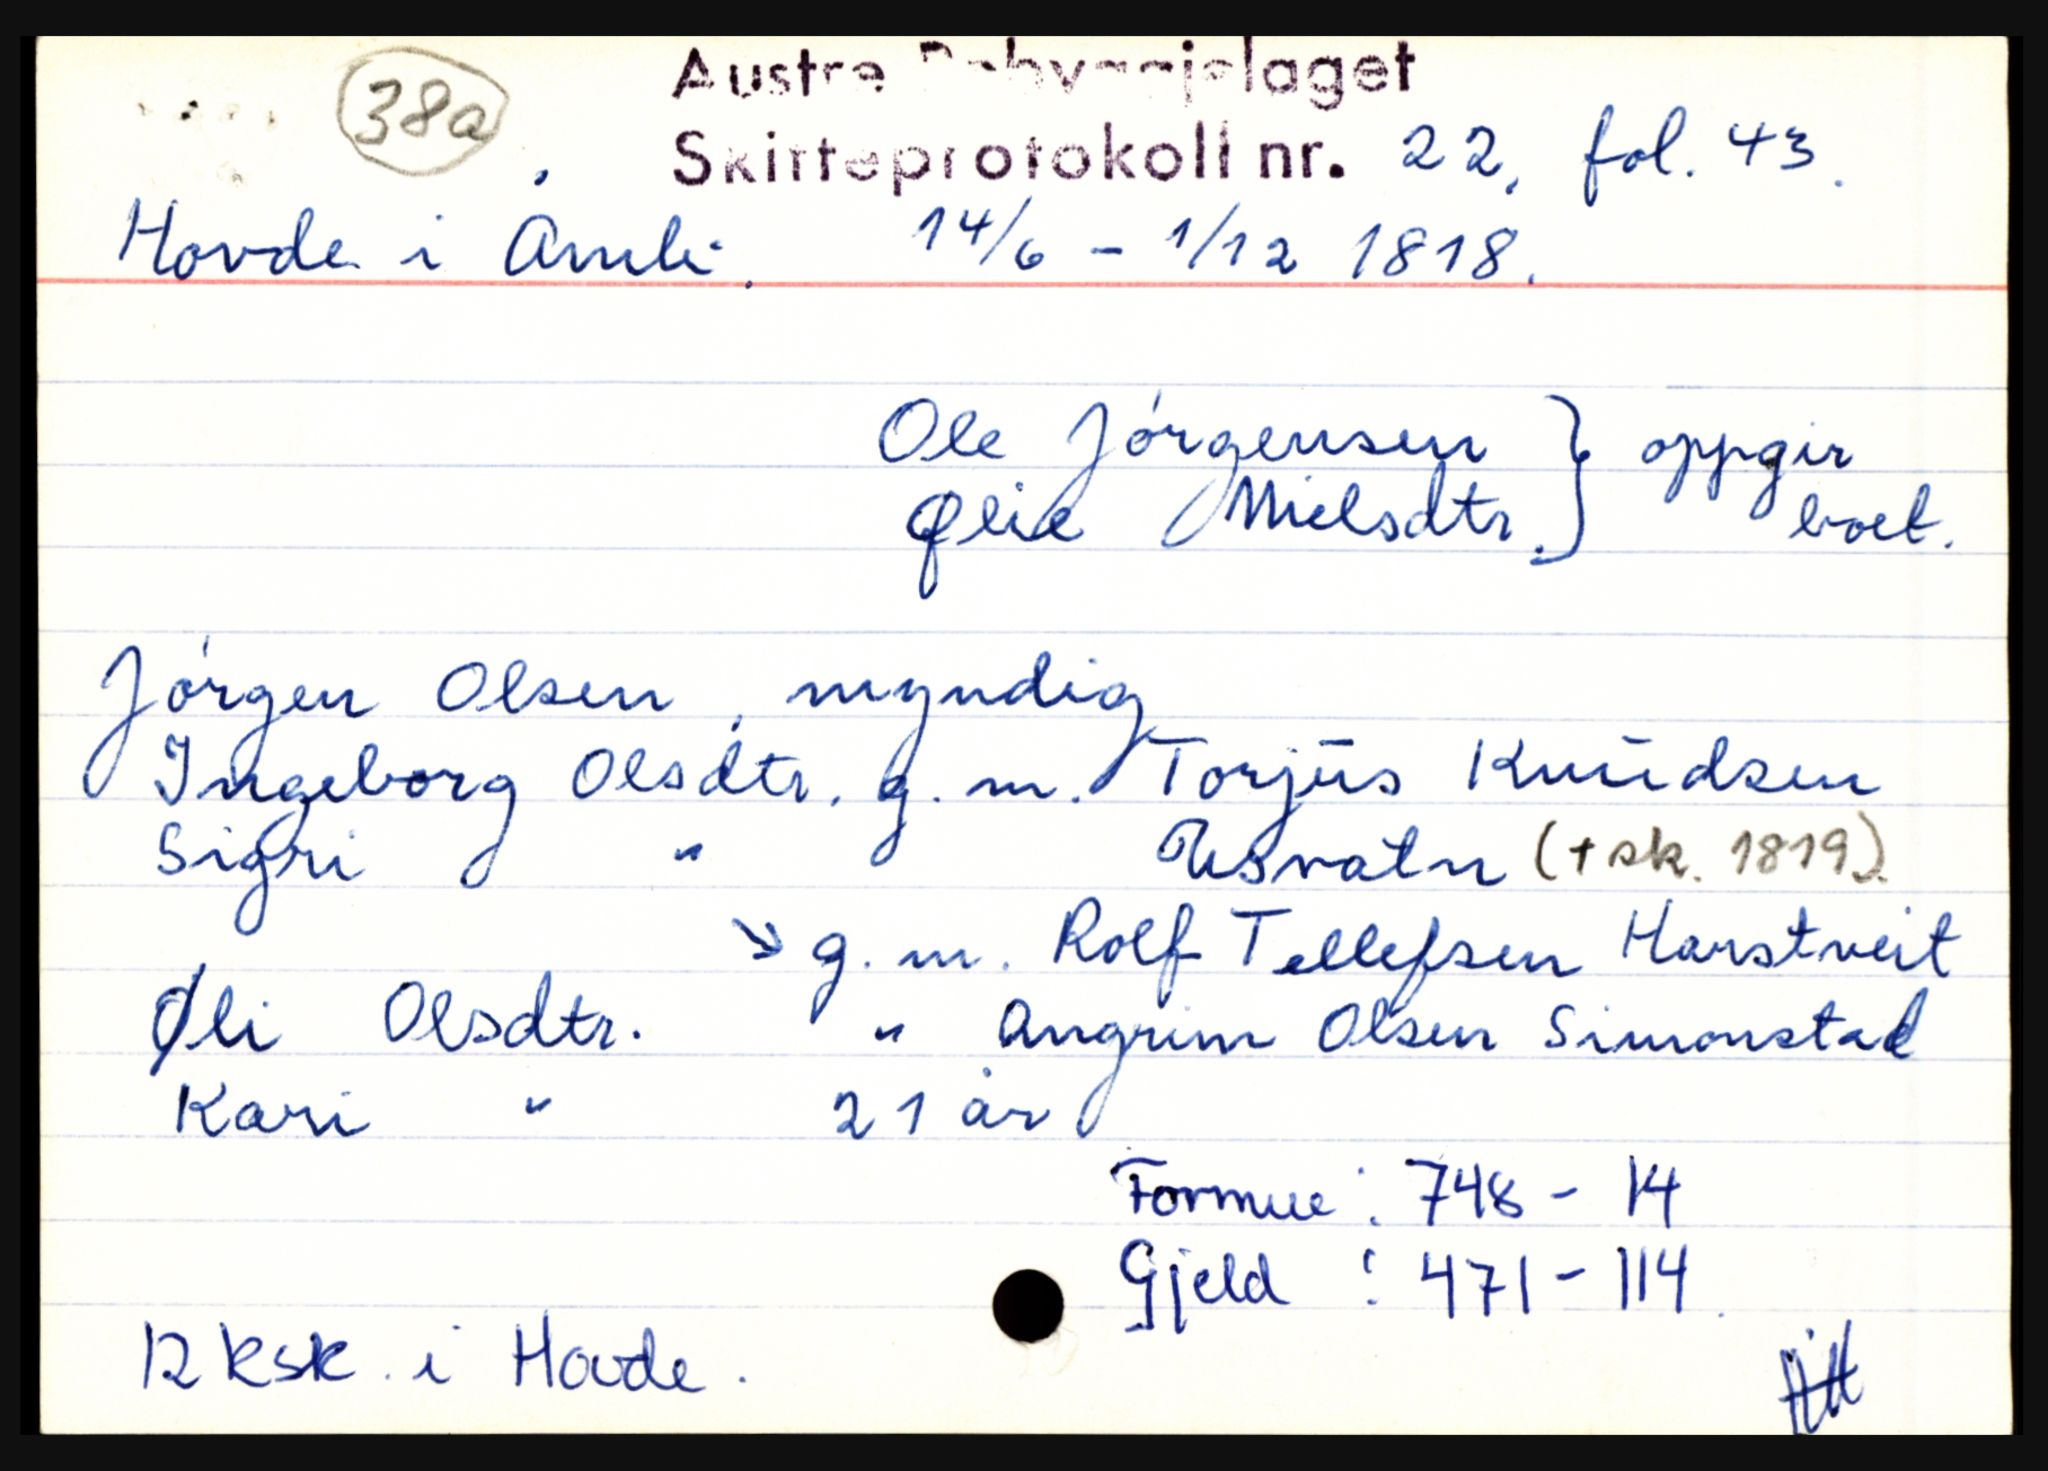 38a
Austre Rabyggjelaget
Skifteprotokoll nr. 22, fol. 43.
Hovde i Åmli. 14/6 - 1/12 1818.
Ole Jörgensen } oppgir
Ølie Nielsdtr. } boet.
Jörgen Olsen, myndig
Ingeborg Olsdtr. g. m. Torjus Knudsen
Sigri " Usvatn (+ sk. 1819).
↘ g. m. Rolf Tellefsen Harstveit
Øli Olsdtr. " Angrim Olsen Simonstad
Kari " 21 år
Formue : 748 - 14
Gjeld : 471 - 114.
12 ksk. i Hovde.